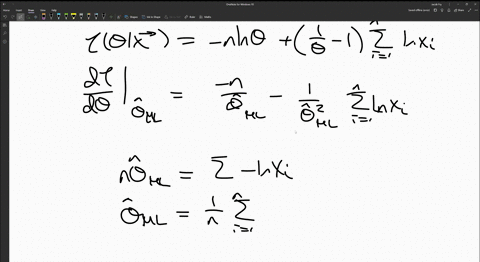 τ(θ|x⃗) = -n ln θ + (1/θ - 1) Σ_{i=1}^{n} ln x_i
dτ/dθ |_{θ̂_ML} = -n/θ̂_ML - 1/θ̂²_ML Σ_{i=1}^{n} ln x_i
nθ̂_ML = Σ -ln x_i
θ̂_ML = 1/n Σ_{i=1}^{n}